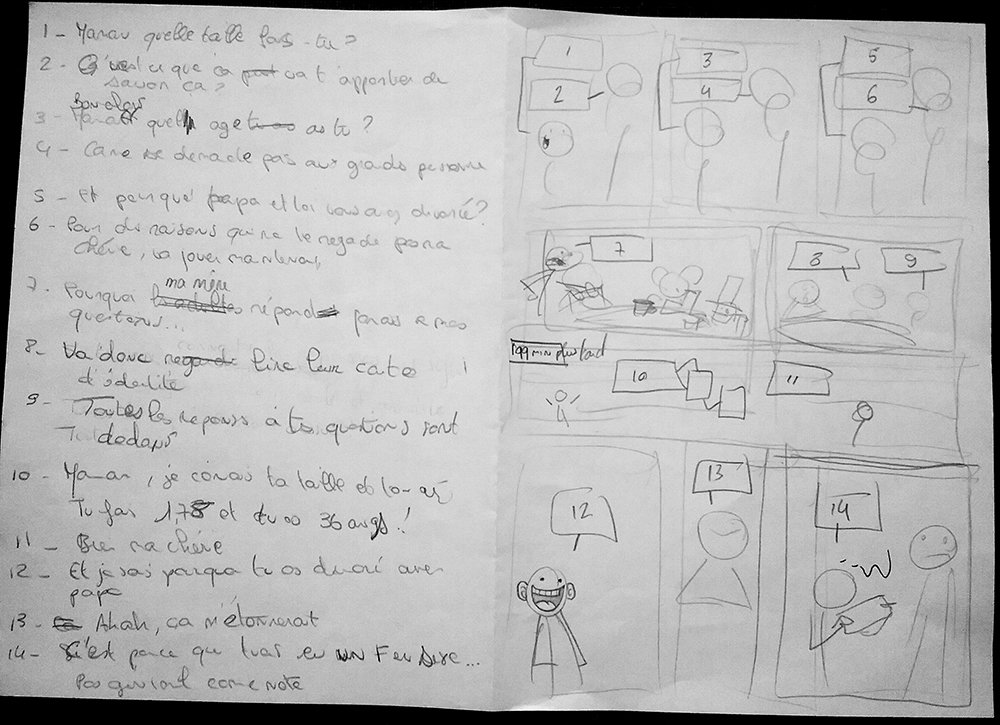 1 - Maman quelle taille fais-tu?
2 - Qu'est ce que ça va t'apporter de
savoir ça?
3 - quel age as tu?
4 - Ca ne se demade pas aux grades personne
5 - Et pourquoi papa et toi vous divorcé?
6 - Pour des raisons qui ne te regade pas ma
chérie, va jouer maintenant
ma mère
7 - Pourquoi répond jamais a mes
questions...
8 - Va donc lire leur cate
d'identité
9 - Toutes les reponses à tes questions sont
dedans
10 - Maman, je conais ta taille et ton age
Tu fais 1,78 et tu as 36 ans!
11 - Bien ma chérie
12 - Et je sais pourquoi tu as divorcé avec
papa
13 - Ahah, ça m'étonnerait
14 - C'est parce que tu as eu un F en sexe...
Pas comme note
1
2
3
4
5
6
7
8
9
plus tard
10
11
12
13
14